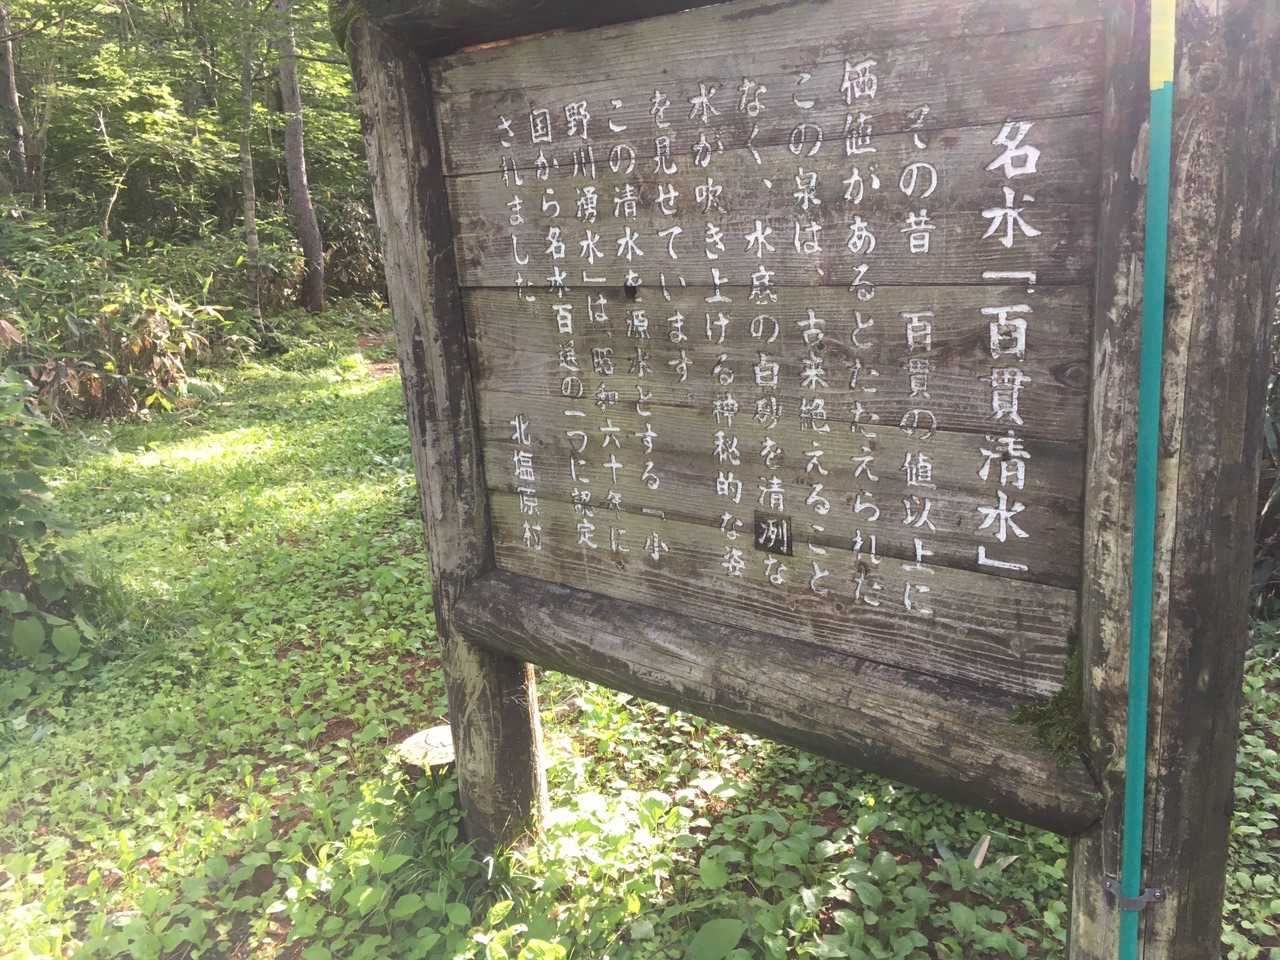 名水「百貫清水」
その昔 百貫の値以上に
価値があるとたたえられた
この泉は、古来絶えること
なく、水底の白砂を清冽な
水が吹き上げる神秘的な姿
を見せています
この清水を源水とする「小
野川湧水」は、昭和六十年に
国から名水百選の一つに認定
されました。
北塩原村